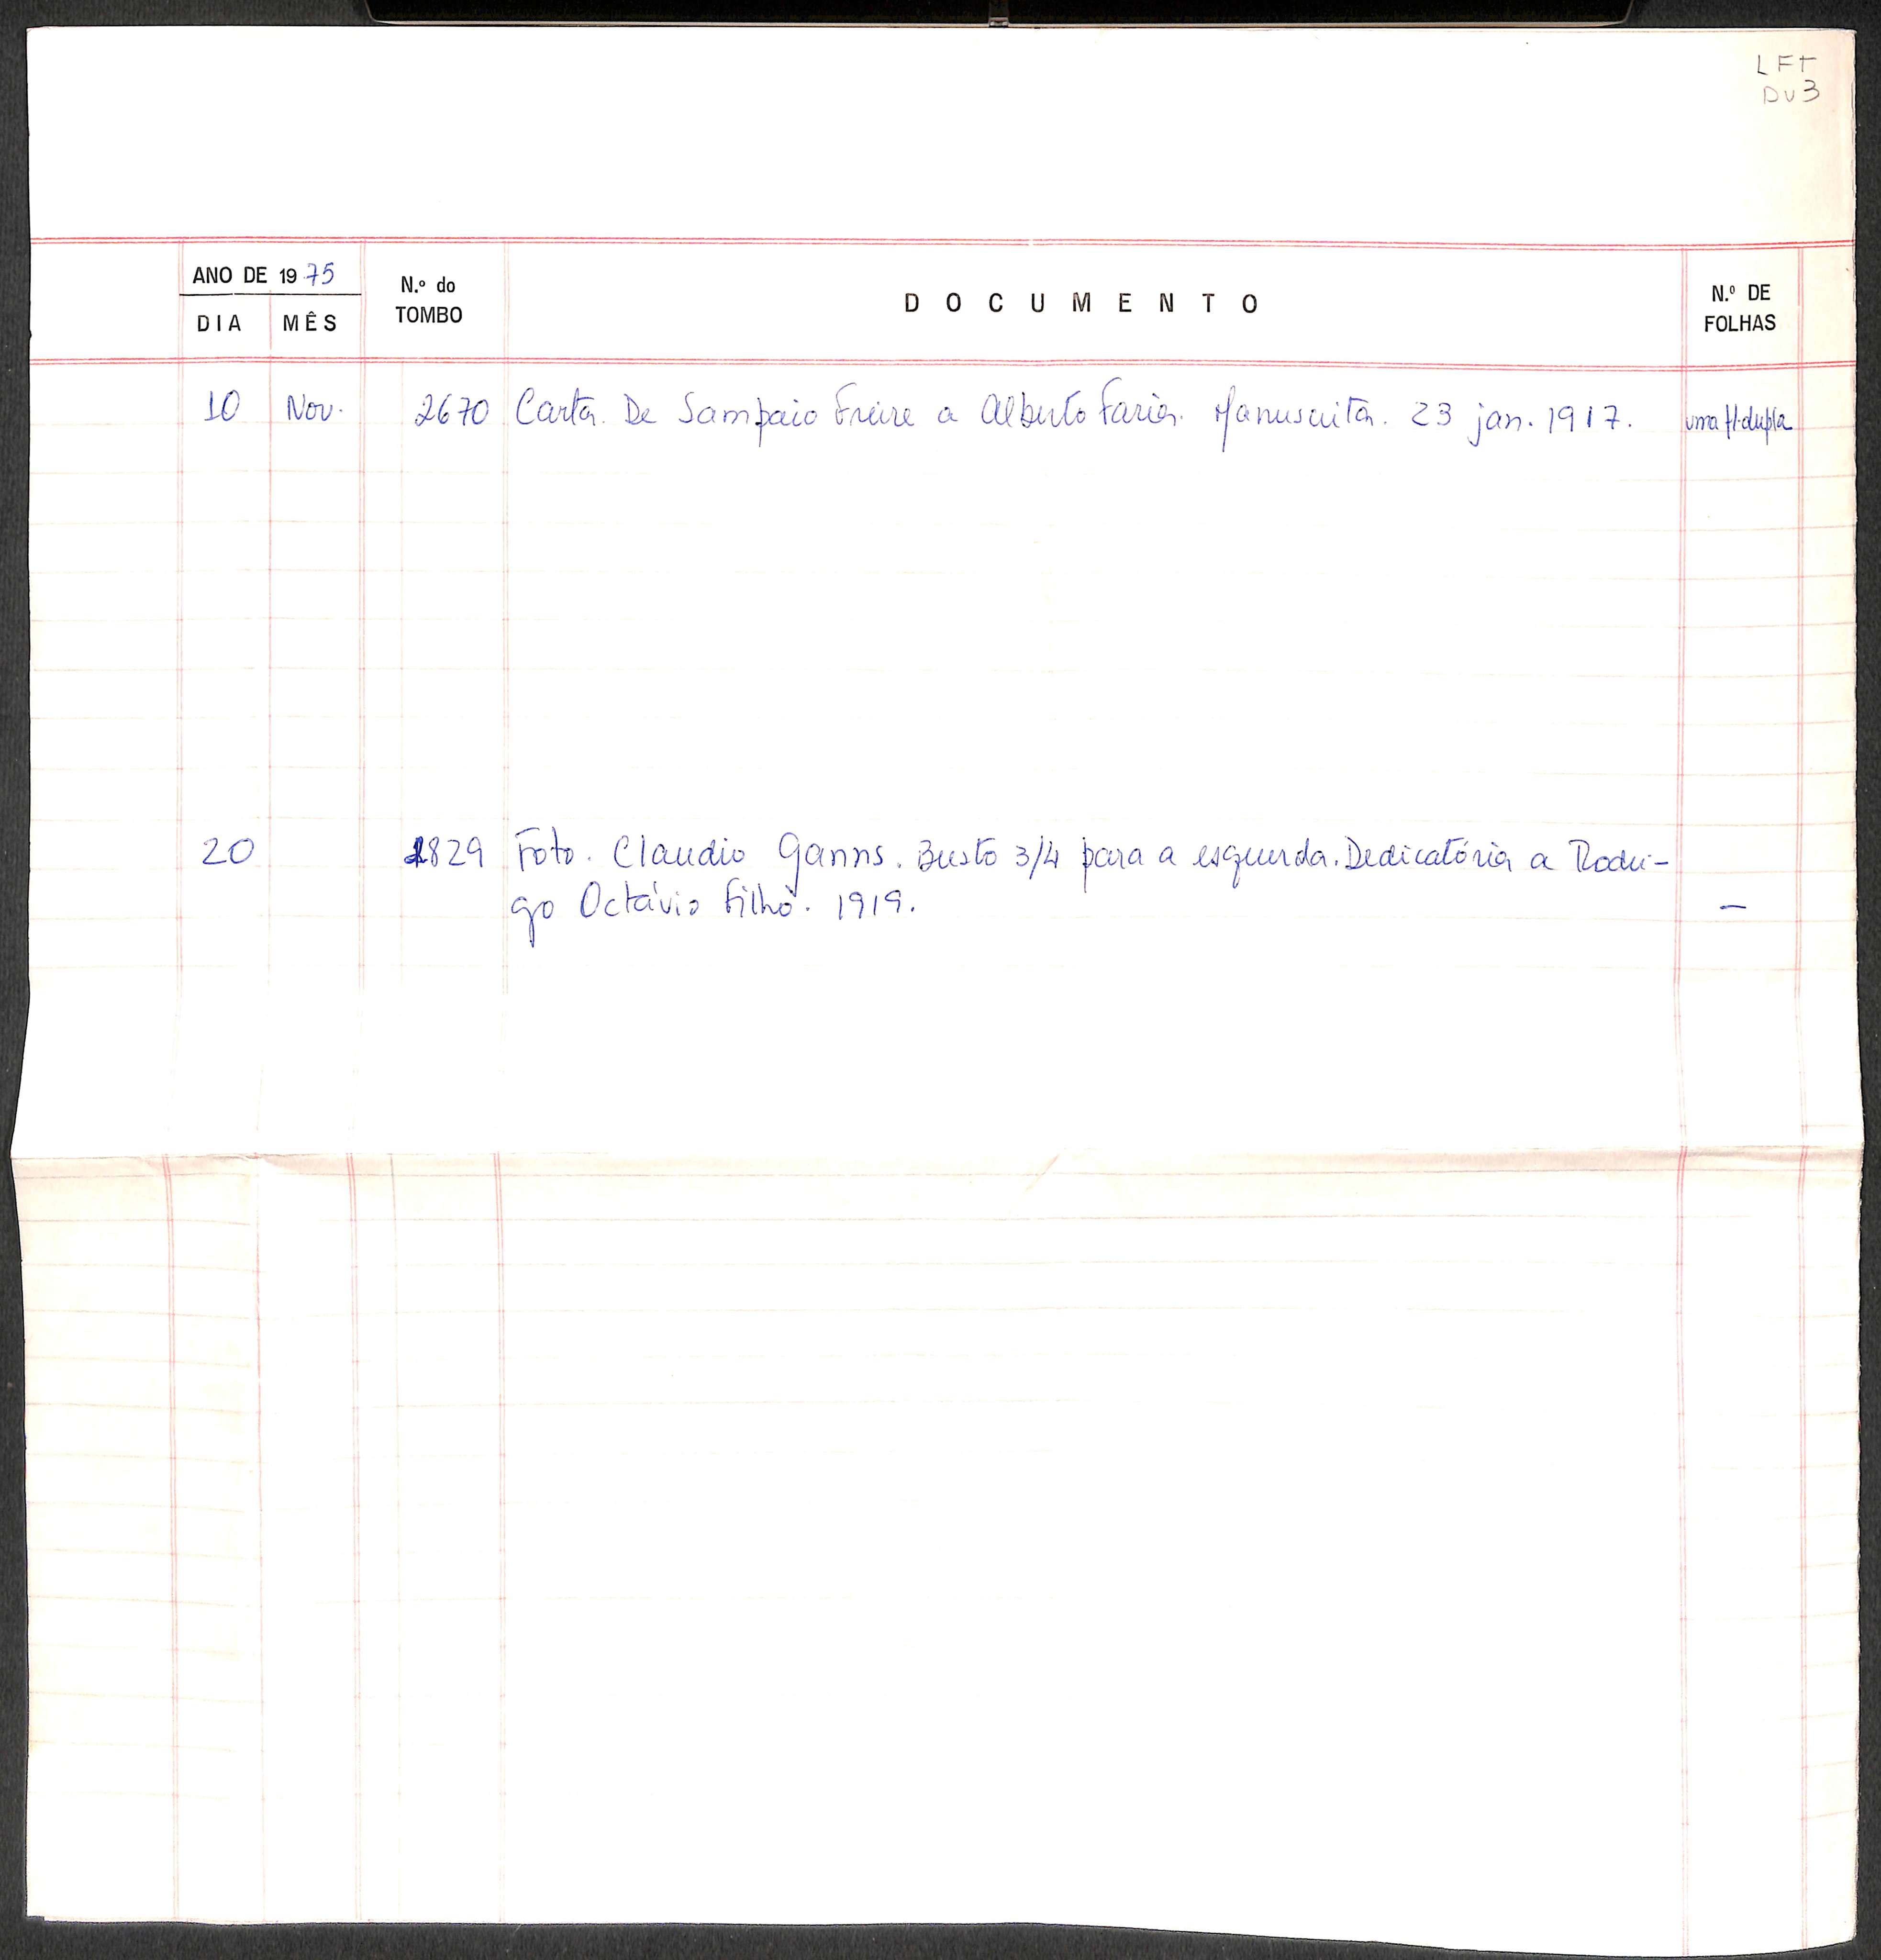 LFT
Dv3
ANO DE 1975
DIA MÊS
N.º do
TOMBO
DOCUMENTO
N.º DE
FOLHAS
10 Nov. 2670 Carta. De Sampaio Freire a Alberto Faria. Manuscrita. 23 jan. 1917. uma fl. dupla
20 1829 Foto. Claudio Ganns. Busto 3/4 para a esquerda. Dedicatória a Rodri-
go Octávio Filho. 1919. —